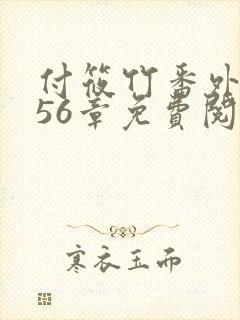 付筱竹番外
56章免費閱
寒衣玉而